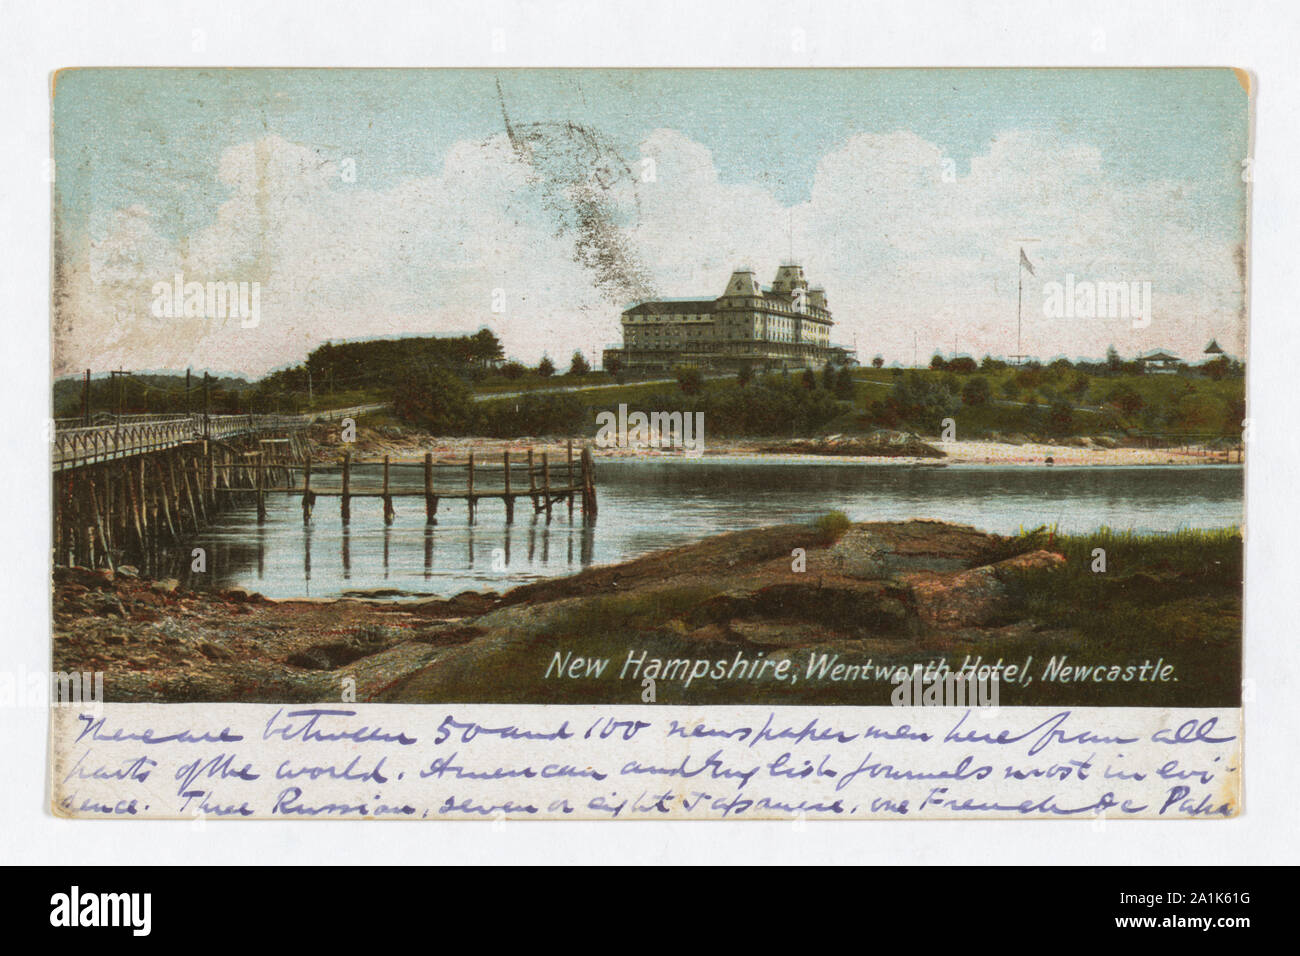 New Hampshire, Wentworth Hotel, Newcastle.
There are between 50 and 100 newspaper men here from all
parts of the world. American and English journals most in evi-
dence. Three Russian, seven or eight Japanese, one French &c Papa
a
alamy
Image ID: 2A1K61G
www.alamy.com